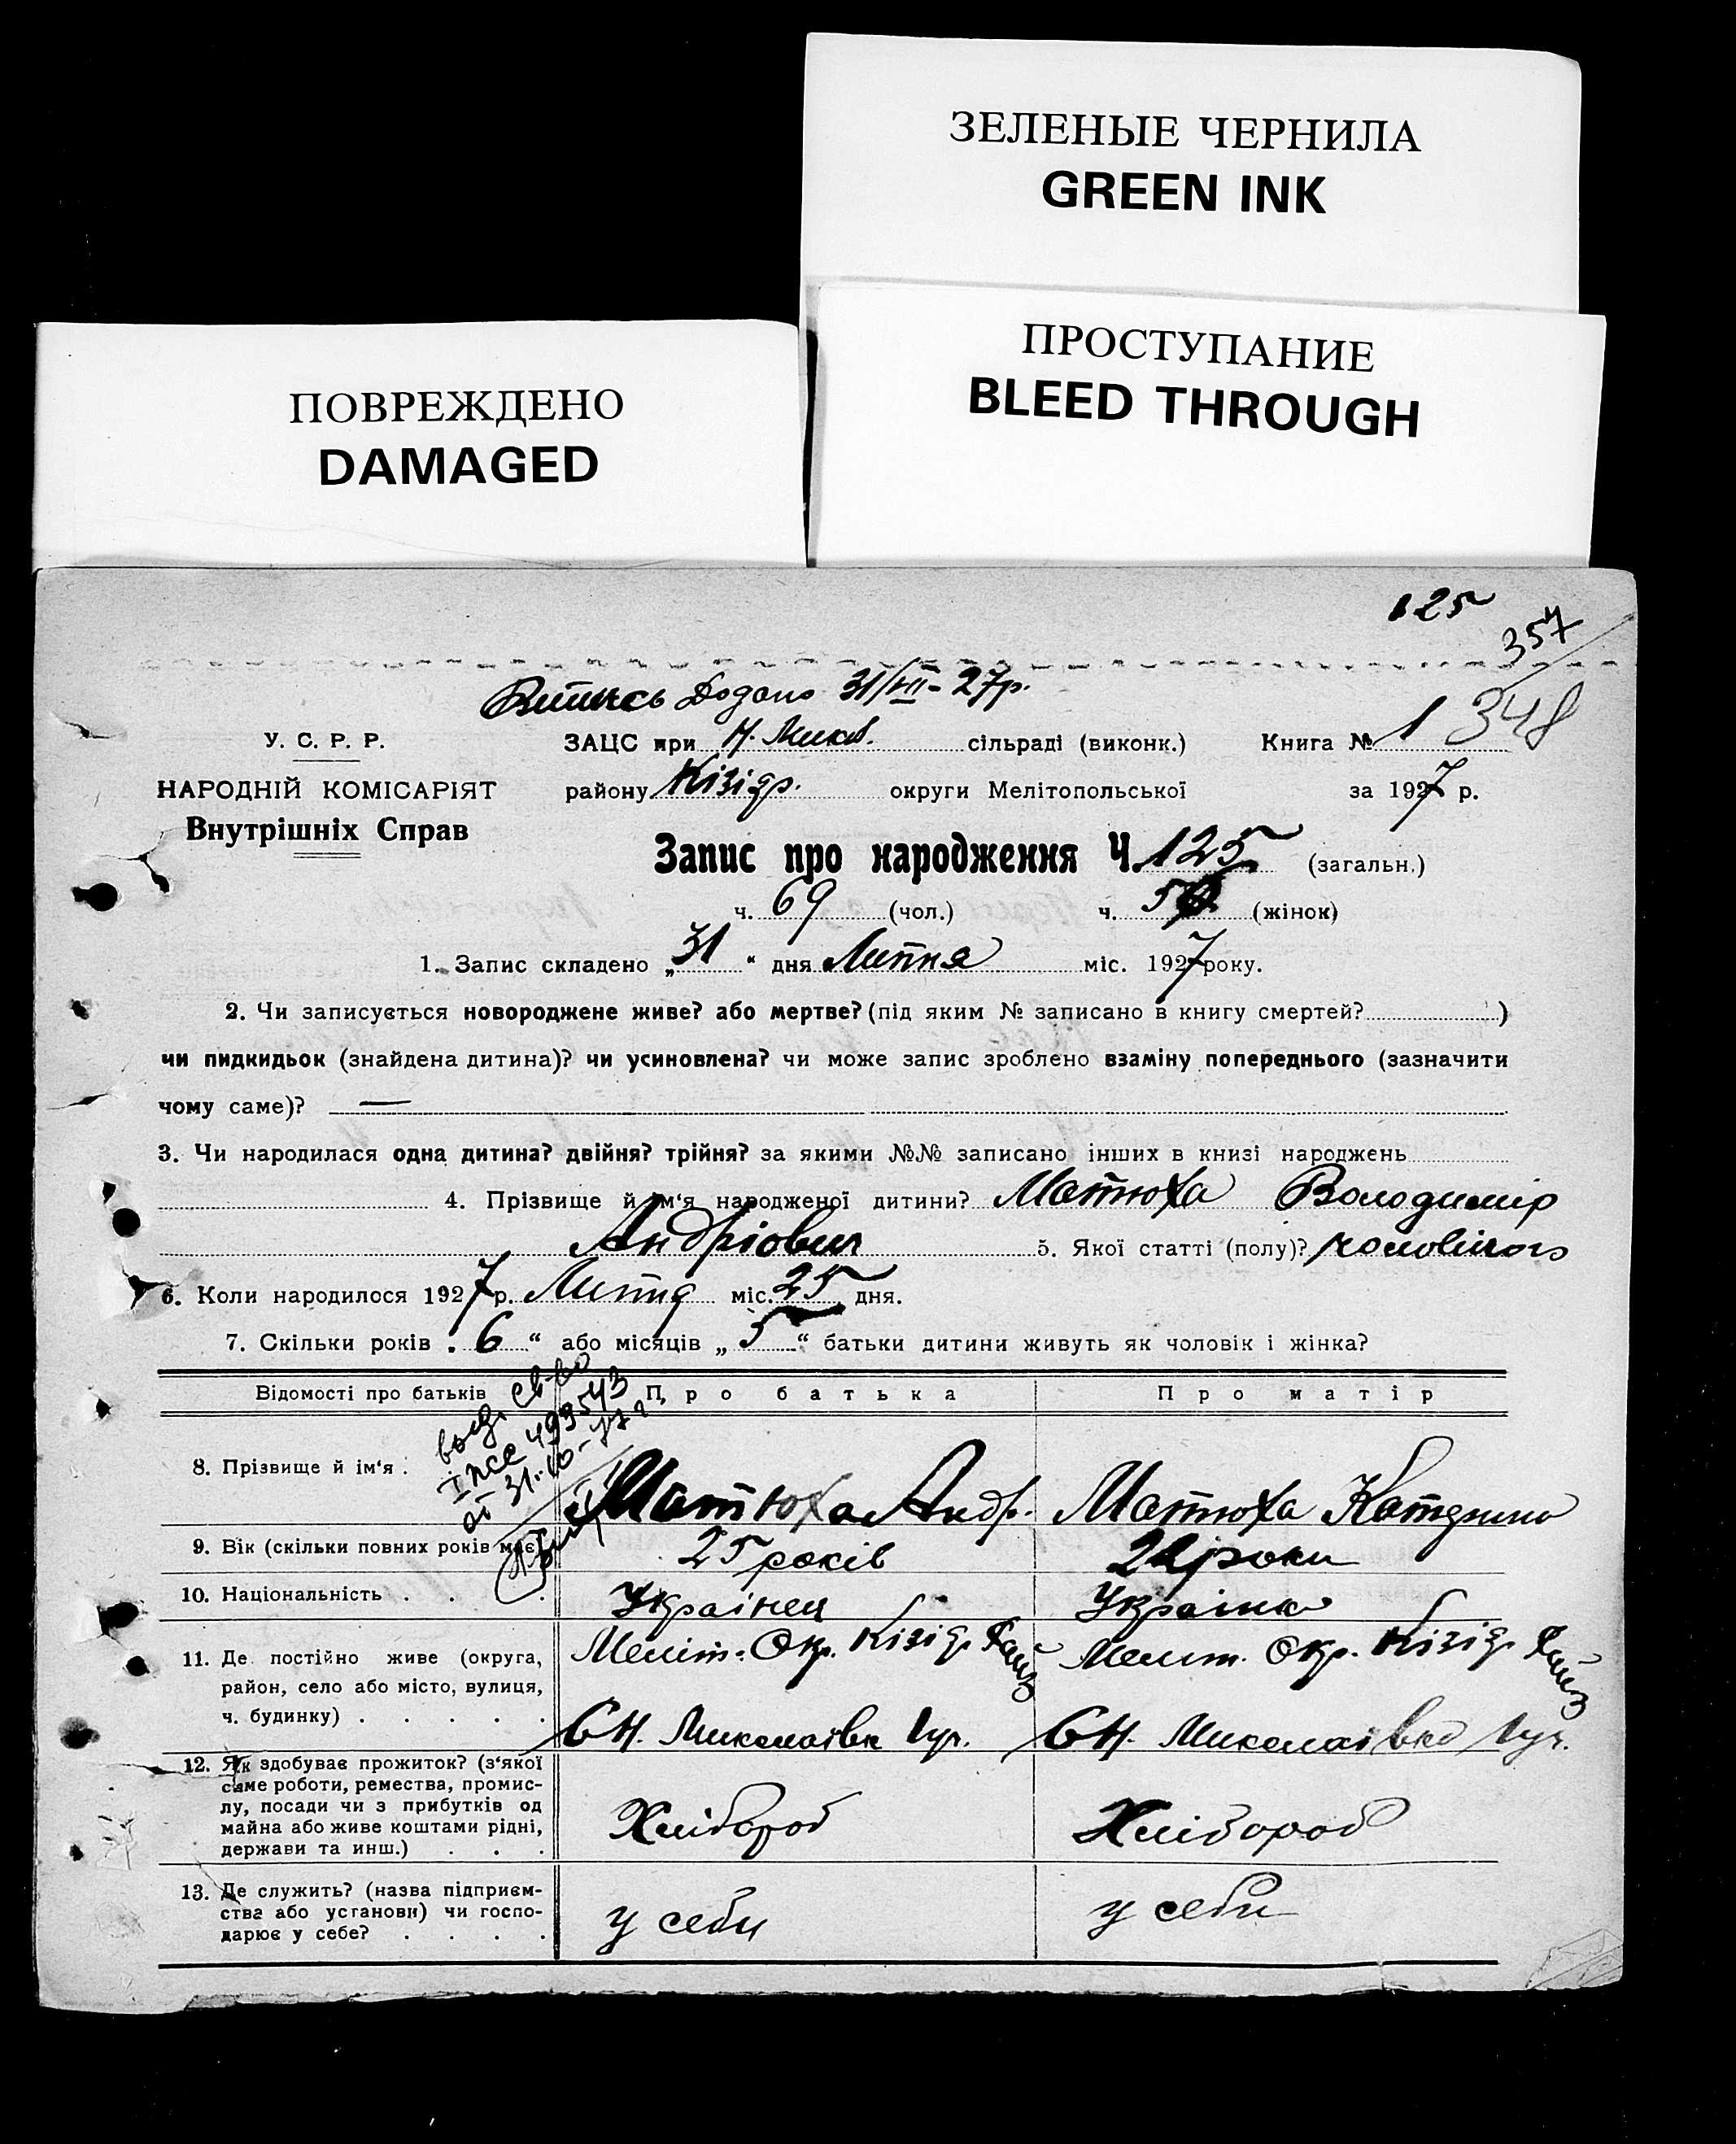 ЗЕЛЕНЫЕ ЧЕРНИЛА
GREEN INK
ПРОСТУПАНИЕ
BLEED THROUGH
ПОВРЕЖДЕНО
DAMAGED
125
357
348
Витись Додано 31/VII-27р.
У. С. Р. Р.
НАРОДНІЙ КОМІСАРІЯТ
Внутрішніх Справ
ЗАЦС при Н. Микол. сільраді (виконк.) Книга № 1
району Кізідр. округи Мелітопольської за 1927 р.
Запис про народження Ч. 125 (загальн.)
ч. 69 (чол.) ч. 5 (жінок)
1. Запис складено „31“ дня Липня міс. 1927 року.
2. Чи записується новороджене живе? або мертве? (під яким № записано в книгу смертей? )
чи пидкидьок (знайдена дитина)? чи усиновлена? чи може запис зроблено взаміну попереднього (зазначити
чому саме)? —
3. Чи народилася одна дитина? двійня? трійня? за якими №№ записано інших в книзі народжень
4. Прізвище й ім‘я народженої дитини? Матюха Володимір
Андріович 5. Якої статті (полу)? чоловічого
6. Коли народилося 1927 р. Липня міс. 25 дня.
7. Скільки років „6“ або місяців „5“ батьки дитини живуть як чоловік і жінка?
Відомості про батьків Про батька Про матір
выд. св-во
I ЖС 499543
от 31-10-77г.
8. Прізвище й ім‘я . Матюха Андр. Матюха Катерина
9. Вік (скільки повних років має) 25 років 22 роки
10. Національність . . . Українец Українка
11. Де постійно живе (округа, район, село або місто, вулиця, ч. будинку) . . . . . Меліт. Окр. Кізідр. Район С Н. Миколаівка Меліт. Окр. Кізідр. Район С Н. Миколаівка
12. Як здобуває прожиток? (з‘якої саме роботи, ремества, промислу, посади чи з прибутків од майна або живе коштами рідні, держави та инш.) . . . Хлібороб Хлібороб
13. Де служить? (назва підприємства або установи) чи господарює у себе? . . . . у себи у себи